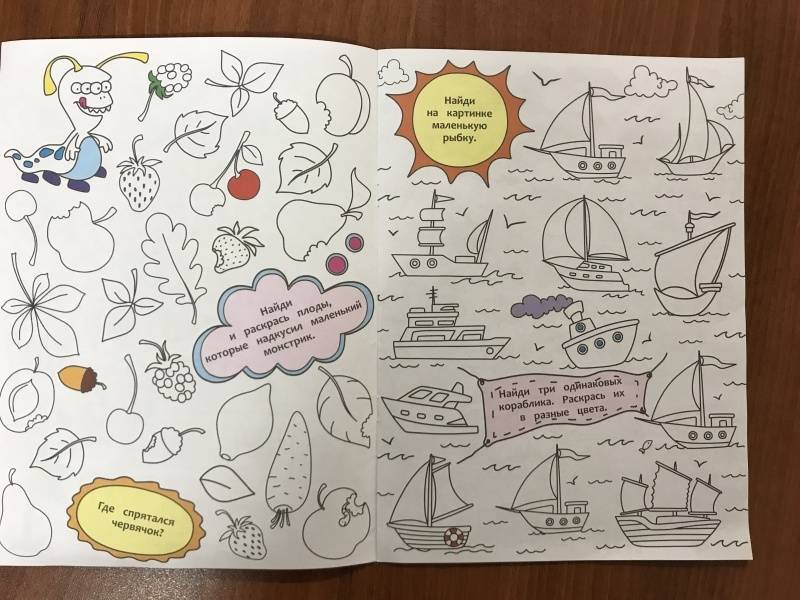 Найди
и раскрась плоды,
которые надкусил маленький
монстрик.
Где спрятался
червячок?
Найди
на картинке
маленькую
рыбку.
Найди три одинаковых
кораблика. Раскрась их
в разные цвета.